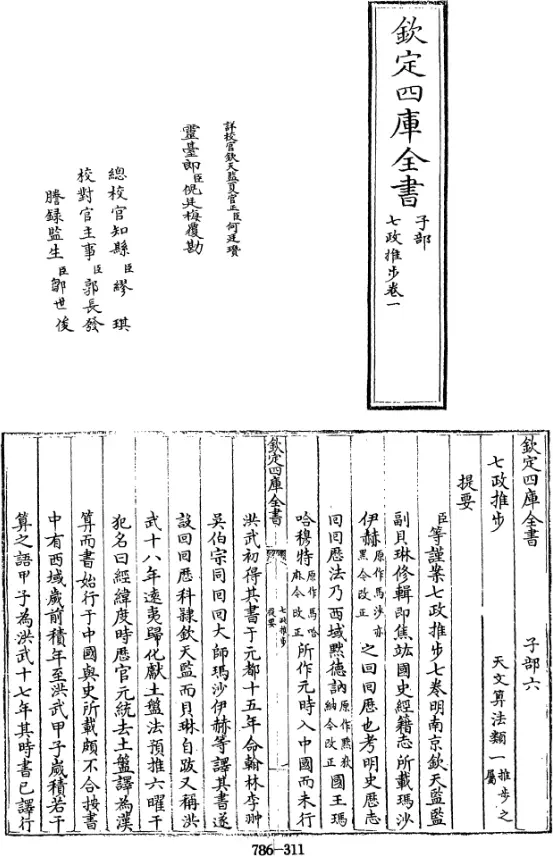 欽定四庫全書
子部
七政推步卷一
詳校官欽天監夏官正臣何廷瓚
靈臺郎臣倪廷梅覆勘
總校官知縣臣繆琪
校對官主事臣郭長發
謄録監生臣鄒世俊
欽定四庫全書 子部六
七政推步 天文算法類一推步之屬
提要
臣等謹案七政推步七卷明南京欽天監監
副貝琳修輯即焦竑國史經籍志所載瑪沙
伊赫原作馬沙亦黑今改正之回回厯也考明史厯志
回回厯法乃西域黙德訥原作黙狄納今改正國王瑪
哈穆特原作馬哈麻今改正所作元時入中國而未行
欽定四庫全書 七政推步 提要
洪武初得其書于元都十五年命翰林李翀
吳伯宗同回回大師瑪沙伊赫等譯其書遂
設回回厯科隸欽天監而貝琳自跋又稱洪
武十八年逺夷歸化獻土盤法預推六曜干
犯名曰經緯度時厯官元統去土盤譯為漢
算而書始行于中國與史所載頗不合按書
中有西域嵗前積年至洪武甲子嵗積若干
算之語甲子為洪武十七年其時書已譯行
786-311